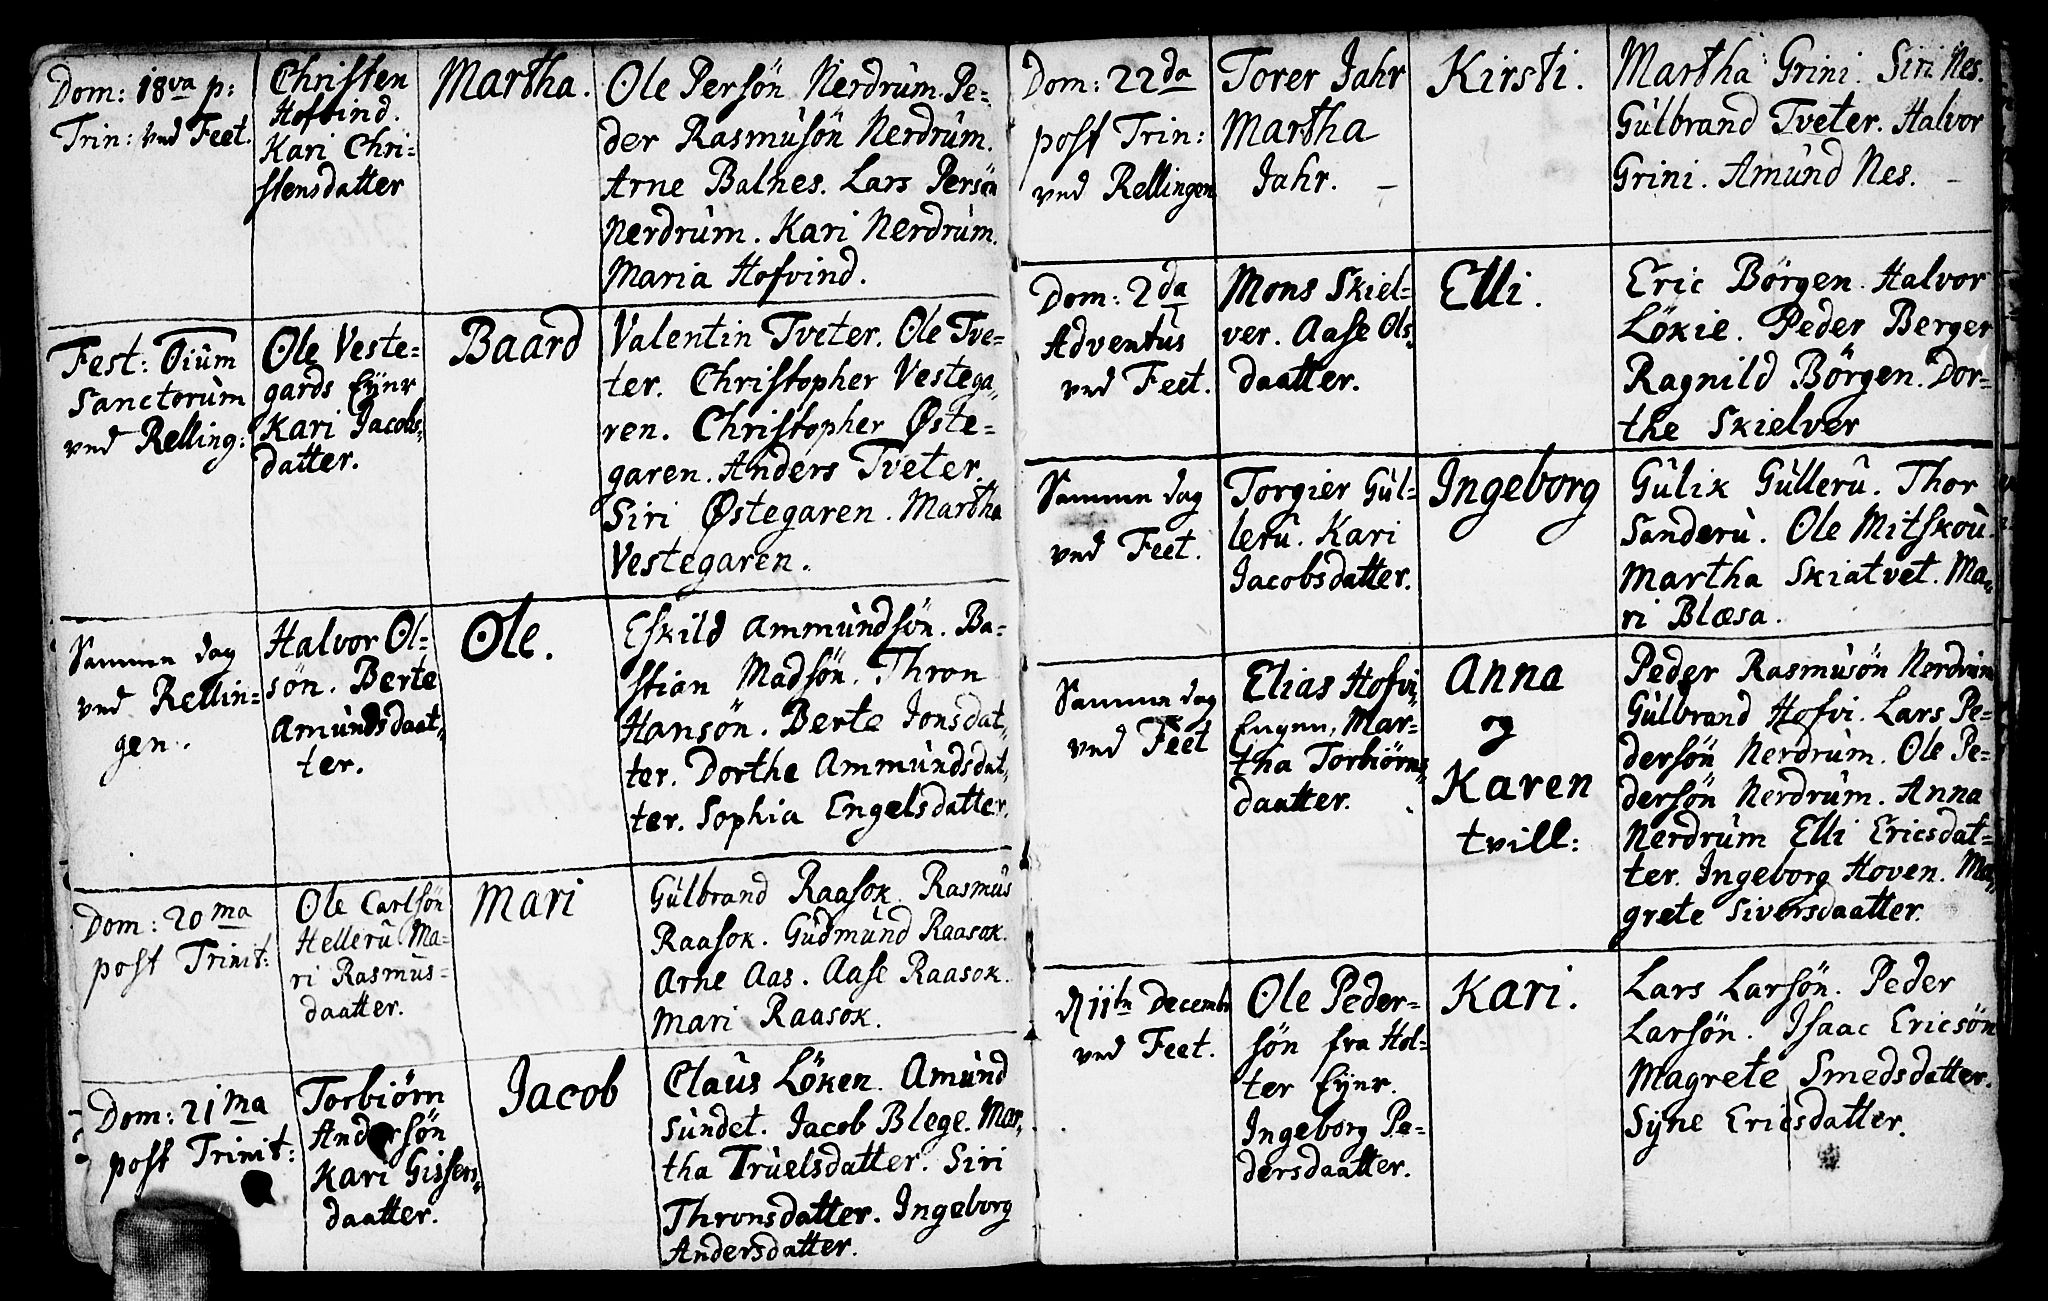 Dom: 18va p:
Trin: ved Feet.
Christen
Hofvind.
Kari Chri-
stensdatter
Martha.
Ole Persön Nerdrùm. Pe-
der Rasmùsön Nerdrùm.
Arne Balnes. Lars Persön
Nerdrùm. Kari Nerdrùm.
Maria Hofvind.
Fest: Oiùm
Sanctorùm
ved Relling:
Ole Veste-
gards Eÿnr
Kari Jacobs-
datter.
Baard
Valentin Tveter. Ole Tve-
ter. Christopher Vestega-
ren. Christopher Øste-
garen. Anders Tveter.
Siri Østegaren. Martha
Vestegaren.
Samme dag
ved Rellin-
gen.
Halvor Ol-
sön. Berte
Amùndsdaat-
ter.
Ole.
Eskild Ammùndsön. Ba-
stian Madsön. Thron
Hansön. Berte Jonsdat-
ter. Dorthe Ammùndsdat-
ter. Sophia Engelsdatter.
Dom: 20ma
post Trinit:
Ole Carlsön
Hellerù Ma-
ri Rasmùs-
daatter.
Mari
Gùlbrand Raasok. Rasmùs
Raasok. Gùdmùnd Raasok.
Arne Aas. Aase Raasok.
Mari Raasok.
Dom: 21ma
post Trinit:
Torbiörn
Andersön
Kari Gissers-
daatter.
Jacob
Claùs Löken. Amùnd
Sùndet. Jacob Blege. Mar-
tha Trùelsdatter. Siri
Thronsdatter. Ingeborg
Andersdatter.
Dom: 22da
post Trin:
ved Rellingen
Torer Jahr
Martha
Jahr. –
Kirsti.
Martha Grini. Siri Nes.
Gùlbrand Tveter. Halvor
Grini. Amùnd Nes. –
Dom: 2da
Adventùs
ved Feet.
Mons Skiel-
ver. Aase Ols-
daatter.
Elli.
Eric Börgen. Halvor
Lökie. Peder Berger
Ragnild Börgen. Dor-
the Skielver
Samme dag
ved Feet.
Torgier Gùl-
lerù. Kari
Jacobsdatter.
Ingeborg
Gùlik Gùllerù. Thor
Sanderù. Ole Mitskoù.
Martha Skiatvet. Ma-
ri Blæsa.
Samme dag
ved Feet
Elias Hofvi,
Mar-
tha Torbiörns-
daatter.
Anna
og
Karen
tvill:
Peder Rasmùsön Nerdrùm
Gùlbrand Hofvi. Lars Pe-
dersön Nerdrùm. Ole Pe-
dersön Nerdrùm. Anna
Nerdrùm Elli Ericsdat-
ter. Ingeborg Hoven. Ma-
grete Siversdaatter.
11te Decembr
ved Feet.
Ole Peder-
sön fra Hol-
ter Eÿnr.
Ingeborg Pe-
dersdaatter.
Kari.
Lars Larsön. Peder
Larsön. Isaac Ericsön
Magrete Smedsdatter.
Sÿne Ericsdatter.